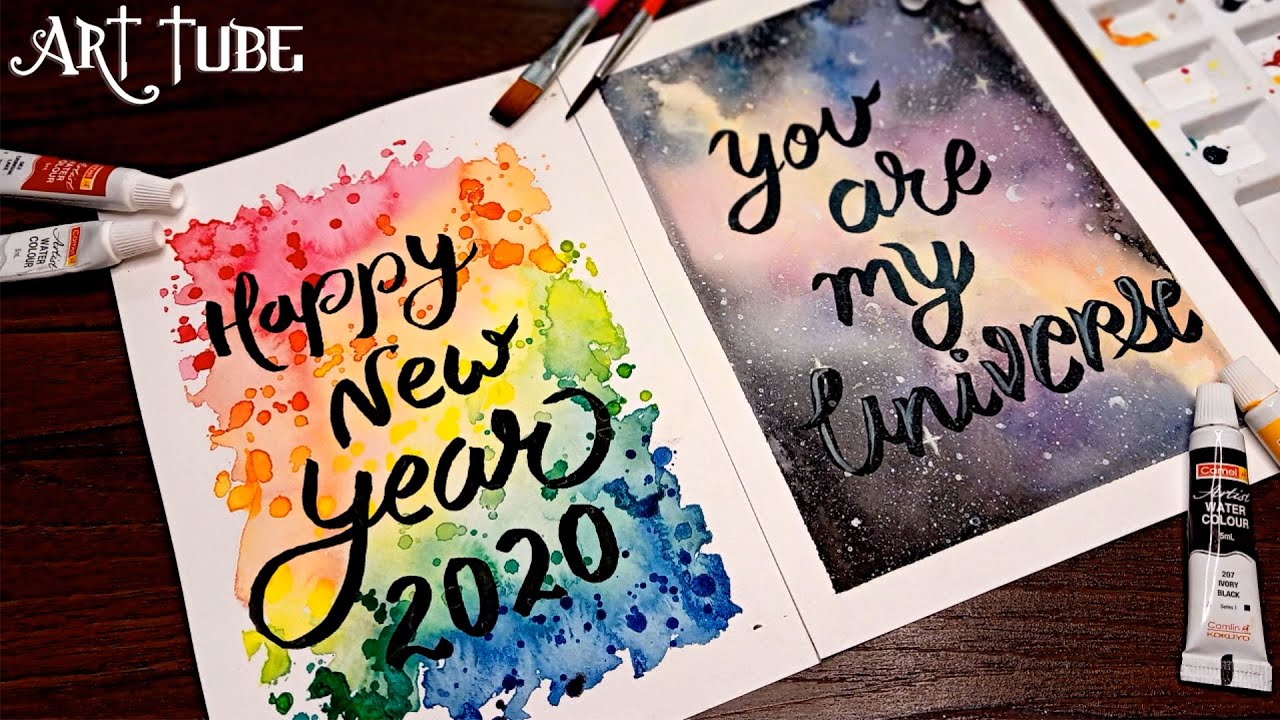 ART TUBE
Happy
New
year
2020
you
are
my
Universe
WATER
COLOUR
Artist
WATER
COLOUR
5mL
Camel
Artist
WATER
COLOUR
5mL
207
IVORY
BLACK
Series 1
Camlin
KOKUYO